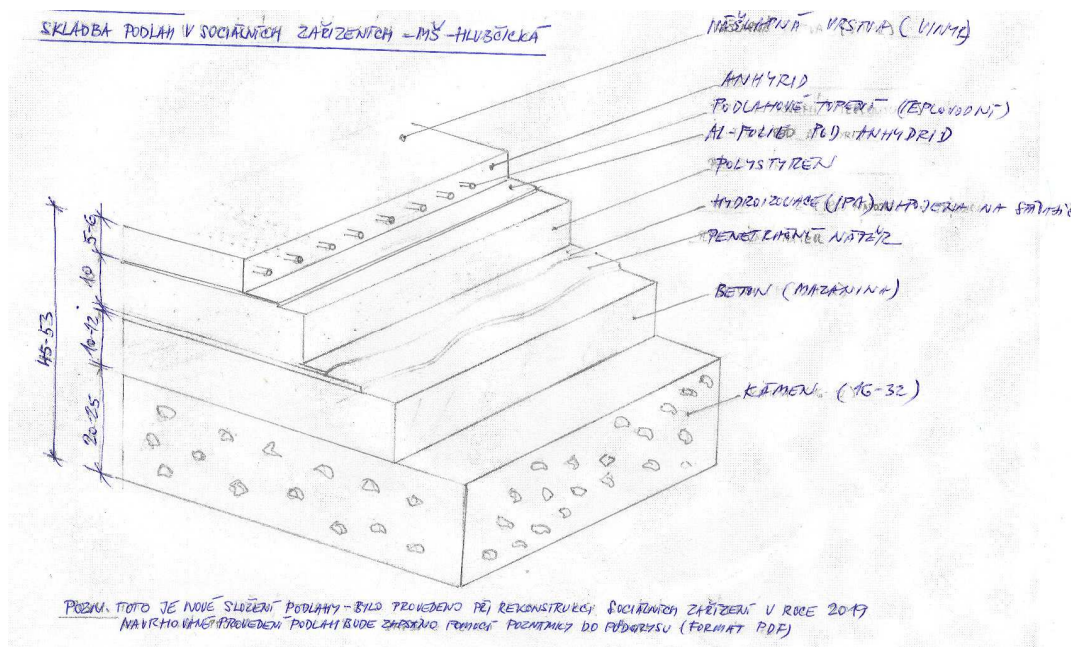 SKLADBA PODLAH V SOCIÁLNÍCH ZAŘÍZENÍCH - MŠ - HLUBČICKÁ
NÁŠLAPNÁ VRSTVA (VINYL)
ANHYRID
PODLAHOVÉ TOPENÍ (TEPLOVODNÍ)
AL-FOLIE POD ANHYDRID
POLYSTYREN
HYDROIZOLACE (IPA) NAPOJENA NA
PENETRAČNÍ NÁTĚR
BETON (MAZANINA)
KÁMEN (16-32)
5-6
10
10-12
20-25
45-53
POZN. TOTO JE NOVÉ SLOŽENÍ PODLAHY - BYLO PROVEDENO PŘI REKONSTRUKCI SOCIÁLNÍCH ZAŘÍZENÍ V ROCE 2019
NAVRHOVANÉ PROVEDENÍ PODLAH BUDE ZAPSÁNO POMOCÍ POZNÁMKY DO PŮDORYSU (FORMÁT PDF)